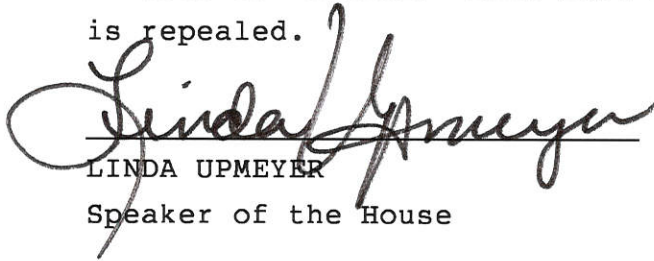 is repealed.
Linda Upmeyer
LINDA UPMEYER
Speaker of the House